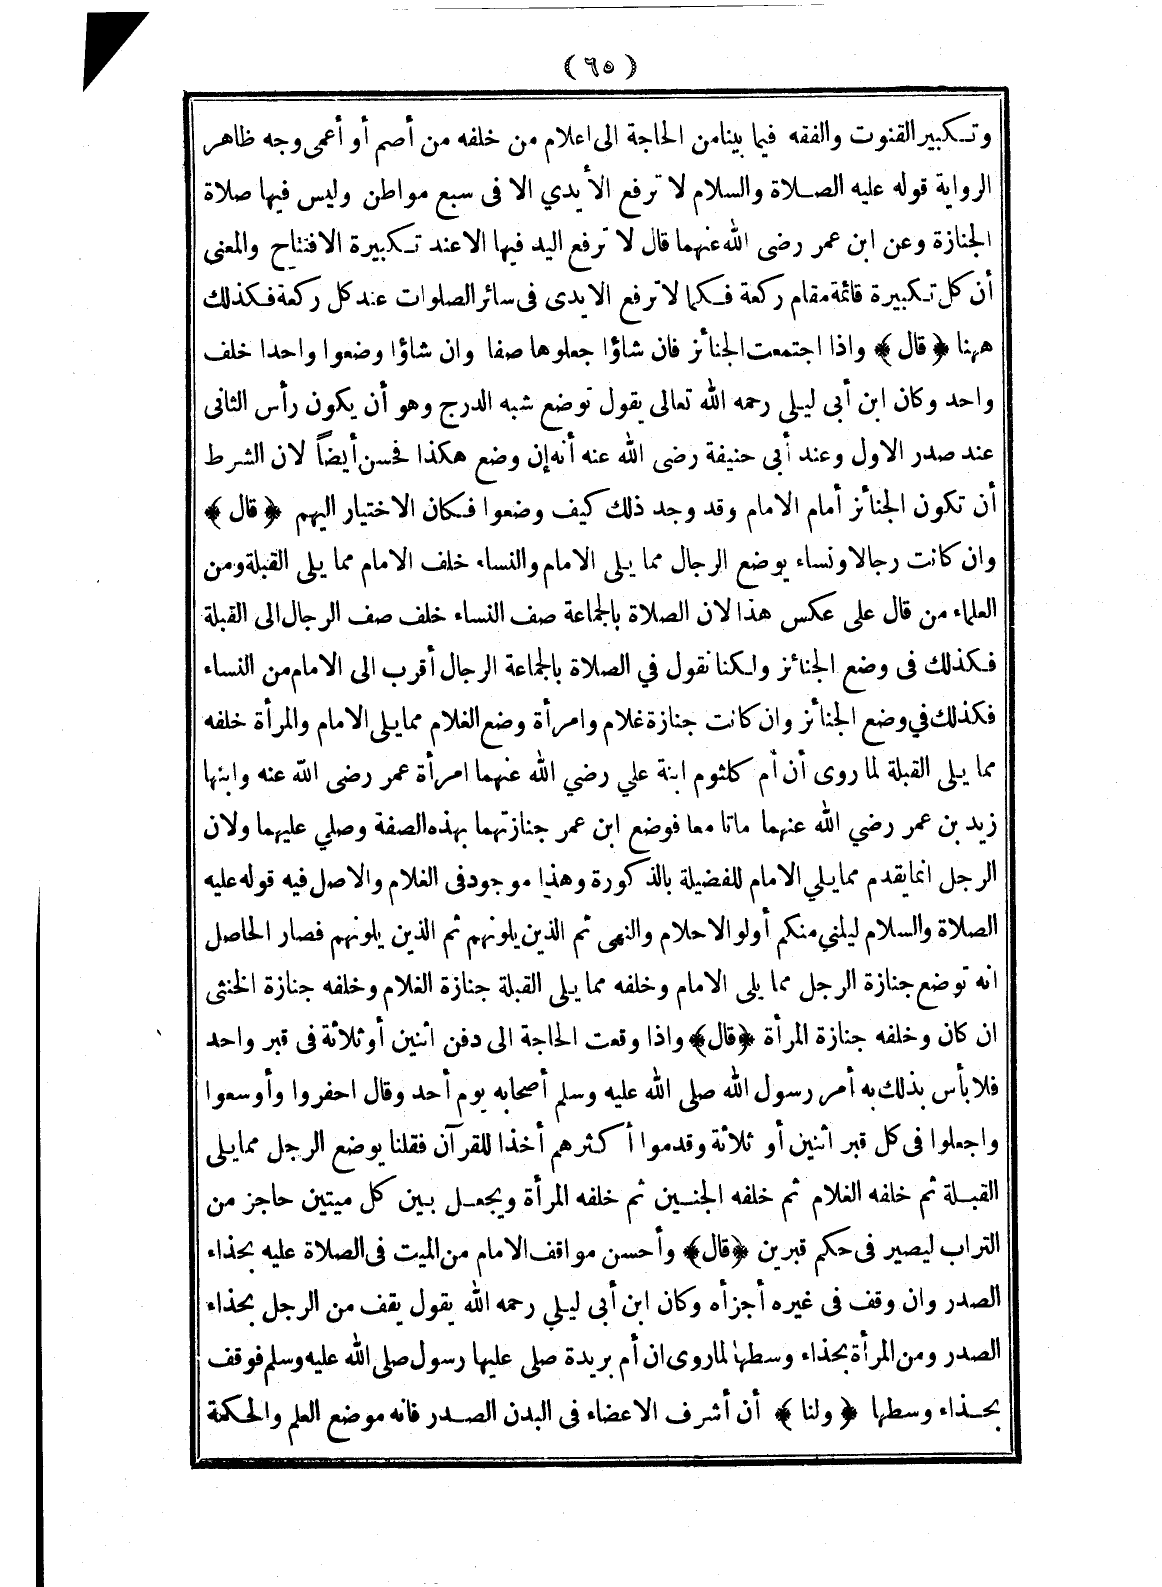 (٦٥)
وتكبير القنوت والفقه فيما بينا من الحاجة الى اعلام من خلفه من أصم أو أعمى وجه ظاهر
الرواية قوله عليه الصلاة والسلام لا ترفع الأيدي الا فى سبع مواطن وليس فيها صلاة
الجنازة وعن ابن عمر رضى الله عنهما قال لا ترفع اليد فيها الا عند تكبيرة الافتتاح والمعنى
أن كل تكبيرة قائمة مقام ركعة فكما لا ترفع الايدى فى سائر الصلوات عند كل ركعة فكذلك
ههنا ﴿قال﴾ واذا اجتمعت الجنائز فان شاؤا جعلوها صفا وان شاؤا وضعوا واحدا خلف
واحد وكان ابن أبى ليلى رحمه الله تعالى يقول توضع شبه الدرج وهو أن يكون رأس الثانى
عند صدر الاول وعند أبى حنيفة رضى الله عنه أنه إن وضع هكذا فحسن أيضاً لان الشرط
أن تكون الجنائز أمام الامام وقد وجد ذلك كيف وضعوا فكان الاختيار اليهم ﴿قال﴾
وان كانت رجالا ونساء يوضع الرجال مما يلى الامام والنساء خلف الامام مما يلى القبلة ومن
العلماء من قال على عكس هذا لان الصلاة بالجماعة صف النساء خلف صف الرجال الى القبلة
فكذلك فى وضع الجنائز ولكنا نقول في الصلاة بالجماعة الرجال أقرب الى الامام من النساء
فكذلك في وضع الجنائز وان كانت جنازة غلام وامرأة وضع الغلام مما يلى الامام والمرأة خلفه
مما يلى القبلة لما روى أن أم كلثوم ابنة علي رضي الله عنهما امرأة عمر رضى الله عنه وابنها
زيد بن عمر رضي الله عنهما ماتا معا فوضع ابن عمر جنازتهما بهذه الصفة وصلي عليهما ولان
الرجل انما يقدم مما يلي الامام للفضيلة بالذكورة وهذا موجود فى الغلام والاصل فيه قوله عليه
الصلاة والسلام ليلني منكم أولو الاحلام والنهى ثم الذين يلونهم ثم الذين يلونهم فصار الحاصل
انه توضع جنازة الرجل مما يلى الامام وخلفه مما يلى القبلة جنازة الغلام وخلفه جنازة الخنثى
ان كان وخلفه جنازة المرأة ﴿قال﴾ واذا وقعت الحاجة الى دفن اثنين أو ثلاثة فى قبر واحد
فلا بأس بذلك به أمر رسول الله صلى الله عليه وسلم أصحابه يوم أحد وقال احفروا وأوسعوا
واجعلوا فى كل قبر اثنين أو ثلاثة وقدموا أكثرهم أخذا للقرآن فقلنا يوضع الرجل مما يلى
القبلة ثم خلفه الغلام ثم خلفه الجنسين ثم خلفه المرأة ويجعل بين كل ميتين حاجز من
التراب ليصير فى حكم قبرين ﴿قال﴾ وأحسن مواقف الامام من الميت فى الصلاة عليه بحذاء
الصدر وان وقف فى غيره أجزأه وكان ابن أبى ليلي رحمه الله يقول يقف من الرجل بحذاء
الصدر ومن المرأة بحذاء وسطها لما روى ان أم بريدة صلى عليها رسول صلى الله عليه وسلم فوقف
بحذاء وسطها ﴿ولنا﴾ أن أشرف الاعضاء فى البدن الصدر فانه موضع العلم والحكمة